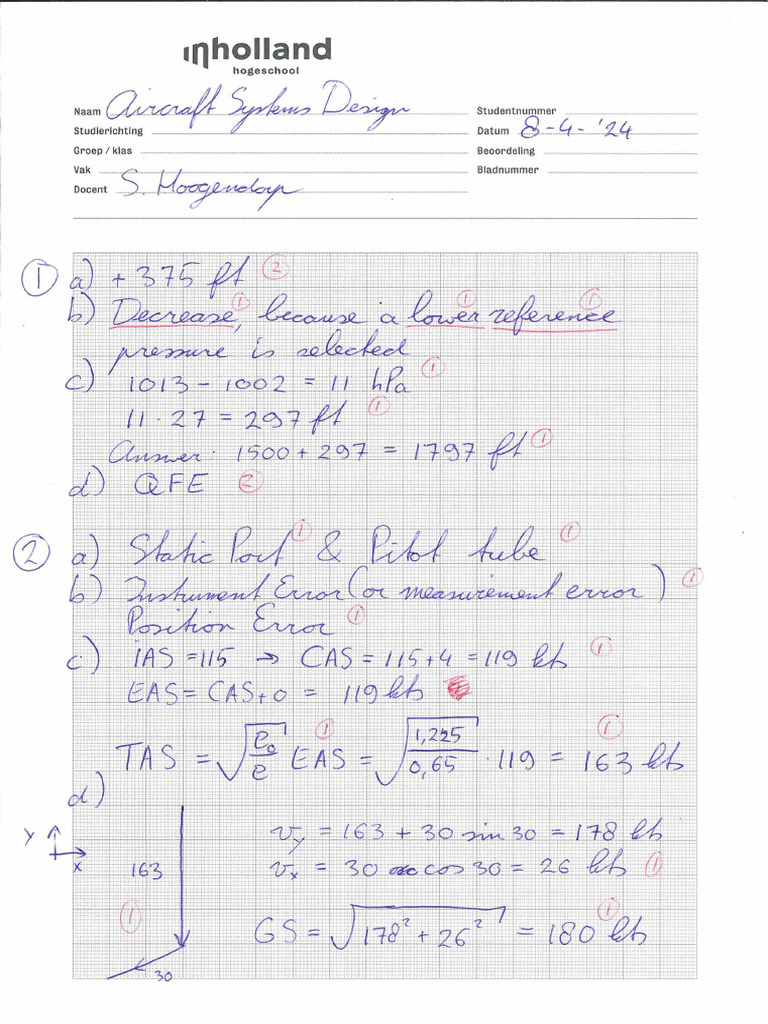 inholland
hogeschool
Naam Aircraft Systems Design Studentnummer
Studierichting Datum 8-4-'24
Groep / klas Beoordeling
Vak Bladnummer
Docent S. Hoogendorp
① a) + 375 ft ②
b) Decrease, ① because a lower ① reference ①
pressure is selected
c) 1013 - 1002 = 11 hPa ①
11 · 27 = 297 ft ①
Answer: 1500 + 297 = 1797 ft ①
d) QFE ②
② a) Static Port ① & Pitot tube ①
b) Instrument Error (or measurement error) ①
Position Error ①
c) IAS = 115 → CAS = 115+4 = 119 kts ①
EAS = CAS + 0 = 119 kts
TAS = √(ρ₀/ρ) ① EAS = √(1,225/0,65) · 119 = 163 kts ①
d)
y x 163 30 ①
v_y = 163 + 30 sin 30 = 178 kts
v_x = 30 cos 30 = 26 kts ①
GS = √(178² + 26²) = 180 kts ①